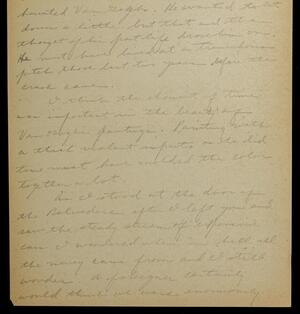 haunted Van Gogh. He wanted to set
down a little but that and the
thought of his past life drove him on.
He must have lived at a tremendous
pitch those last two years before the
crash came.
I think the element of time
was important in the beauty of
Van Gogh's paintings. Painting with
a thick violent impasto as he did
time must have welded the color
together a lot.
As I stood at the door of
the Belvedere after I left you and
saw the steady stream of expensive
cars I wondered where in hell all
the money came from and I still
wonder. A foreigner certainly
would think we were enormously